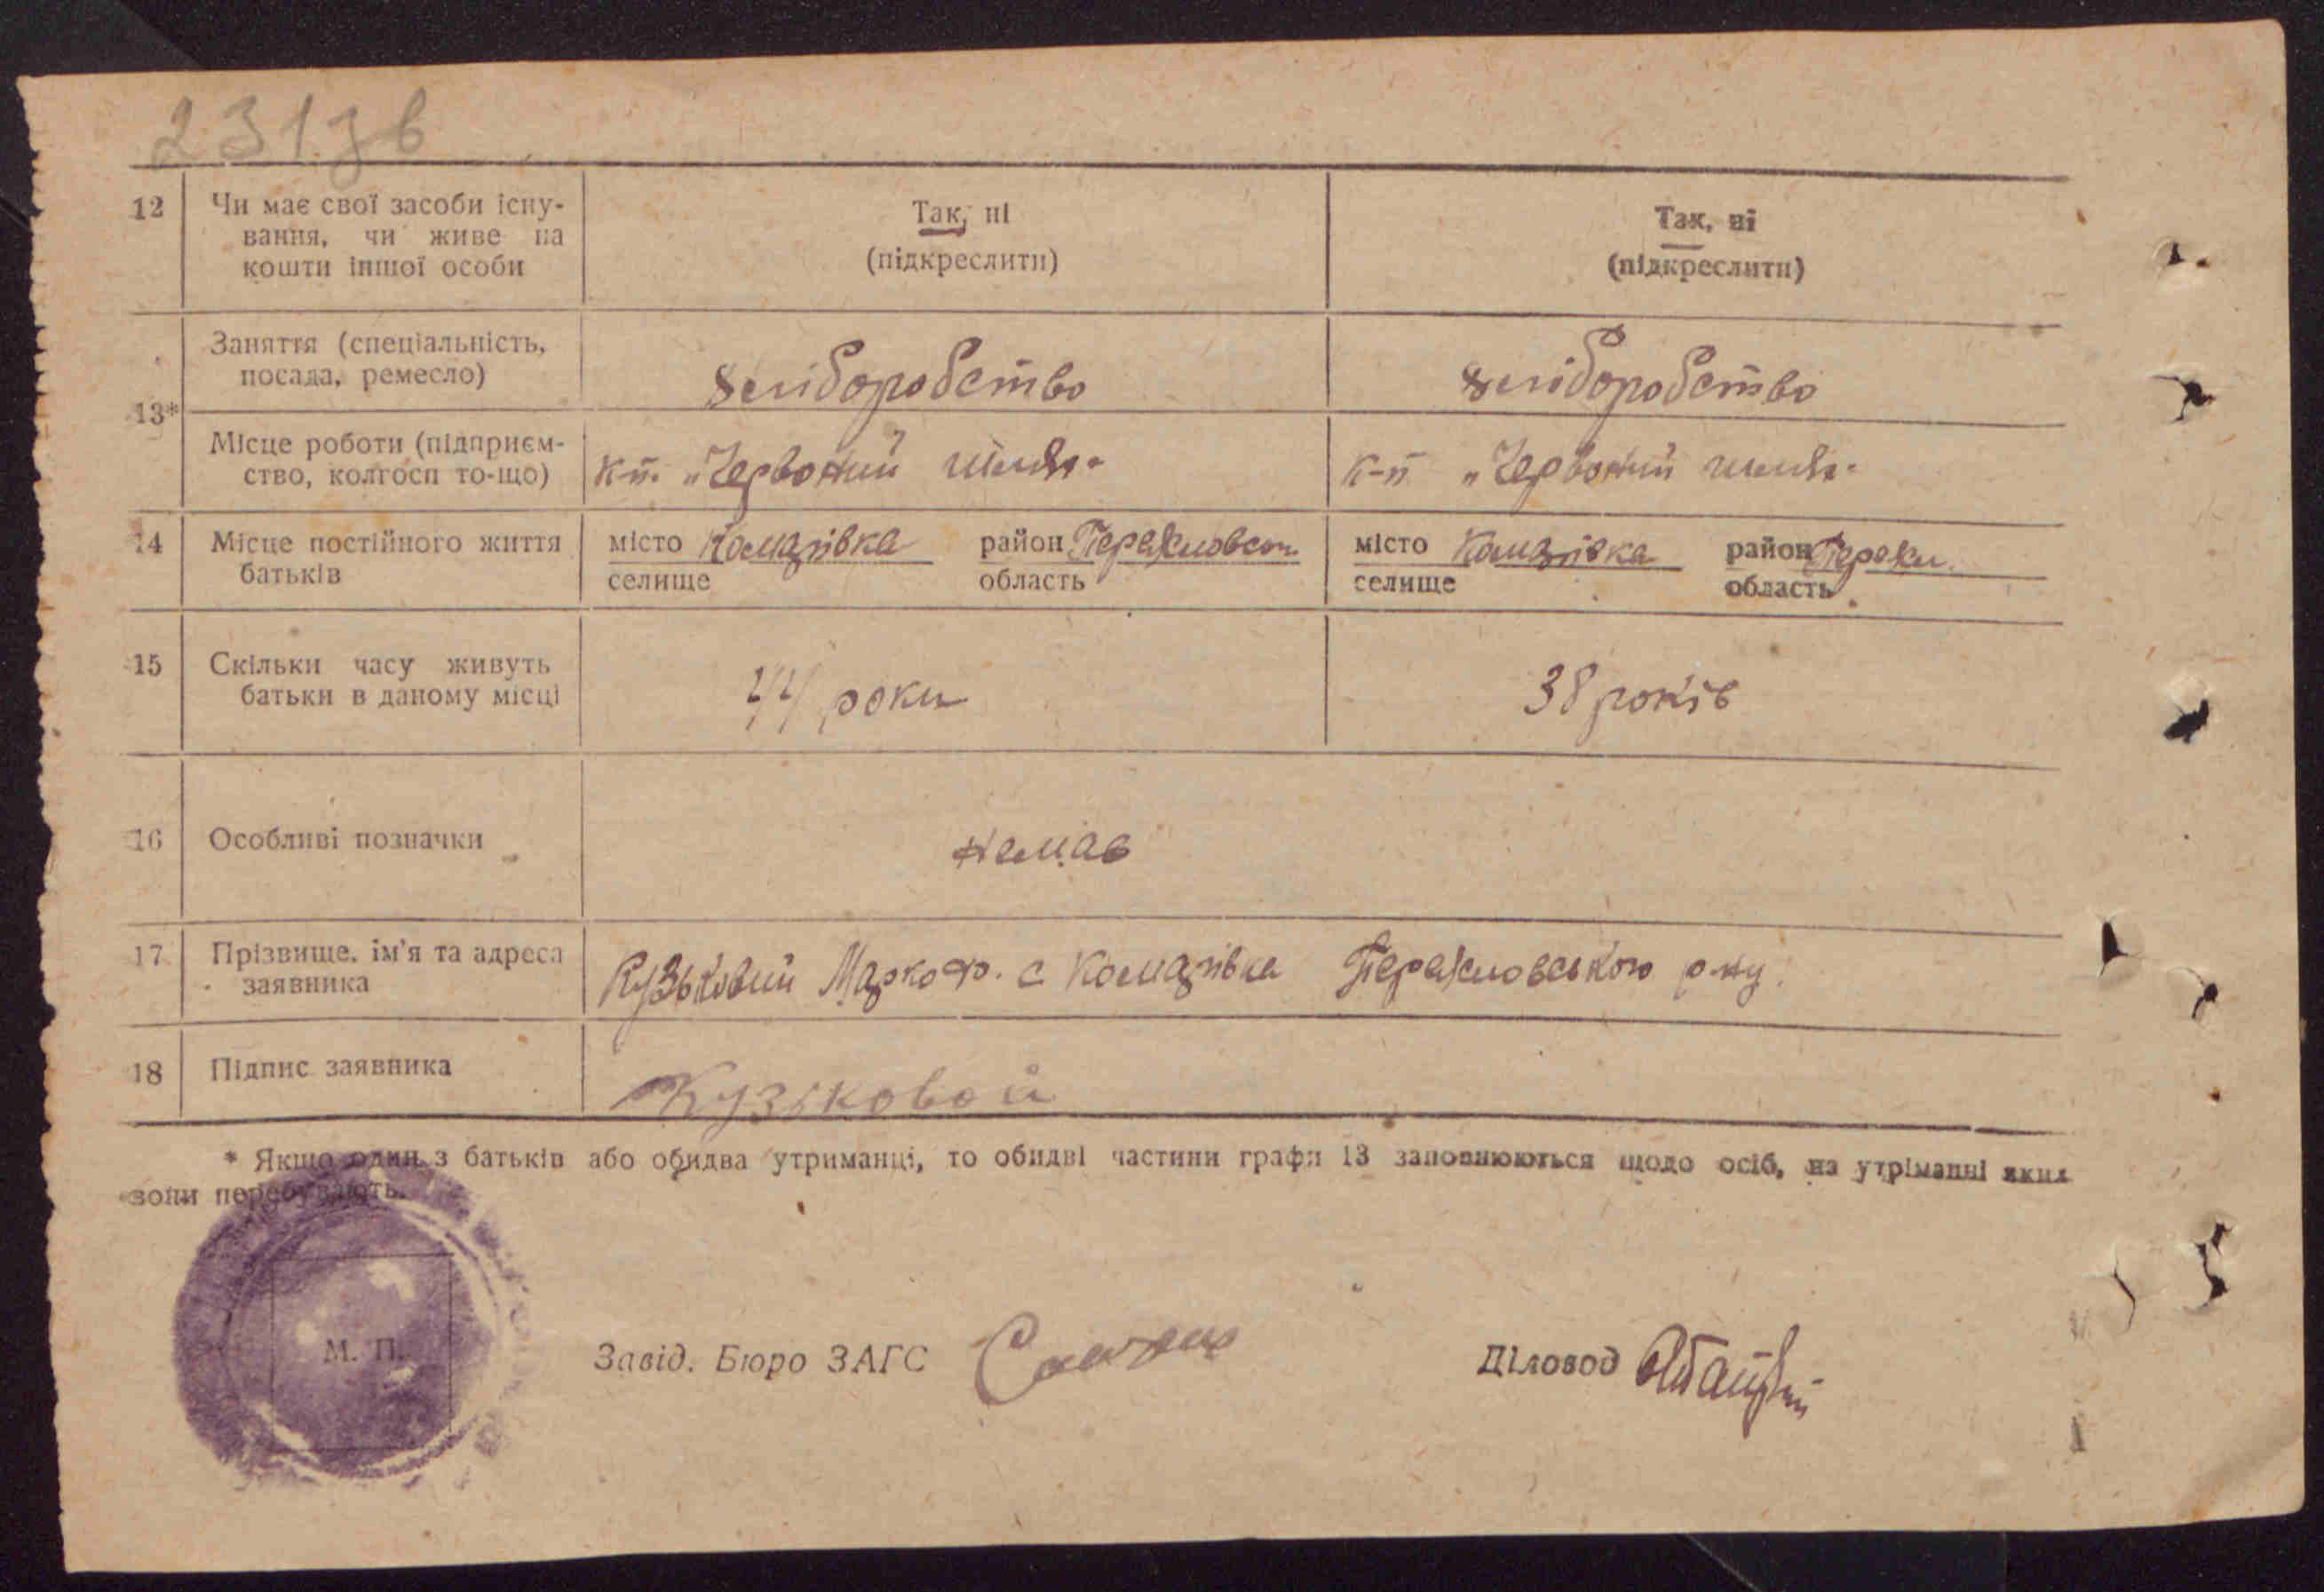 231зв
12 Чи має свої засоби існу-
вання, чи живе на
кошти іншої особи
Так, ні
(підкреслити)
Так, ні
(підкреслити)
13*
Заняття (спеціальність,
посада, ремесло)
хліборобство
хліборобство
Місце роботи (підприєм-
ство, колгосп то-що)
к-п. „Червоний шлях"
к-п „Червоний шлях"
14 Місце постійного життя
батьків
місто Комарівка район
селище область
місто Комарівка район
селище область
15 Скільки часу живуть
батьки в даному місці
44 роки
38 років
16 Особливі позначки
немає
17 Прізвище, ім'я та адреса
заявника
Кузьковий Марко с Комарівка р-ну.
18 Підпис заявника
Кузьковой
* Якщо один з батьків або обидва утриманці, то обидві частини графи 13 заповнюються щодо осіб, на утріманні яких
вони перебувають.
М. П.
Завід. Бюро ЗАГС
Діловод